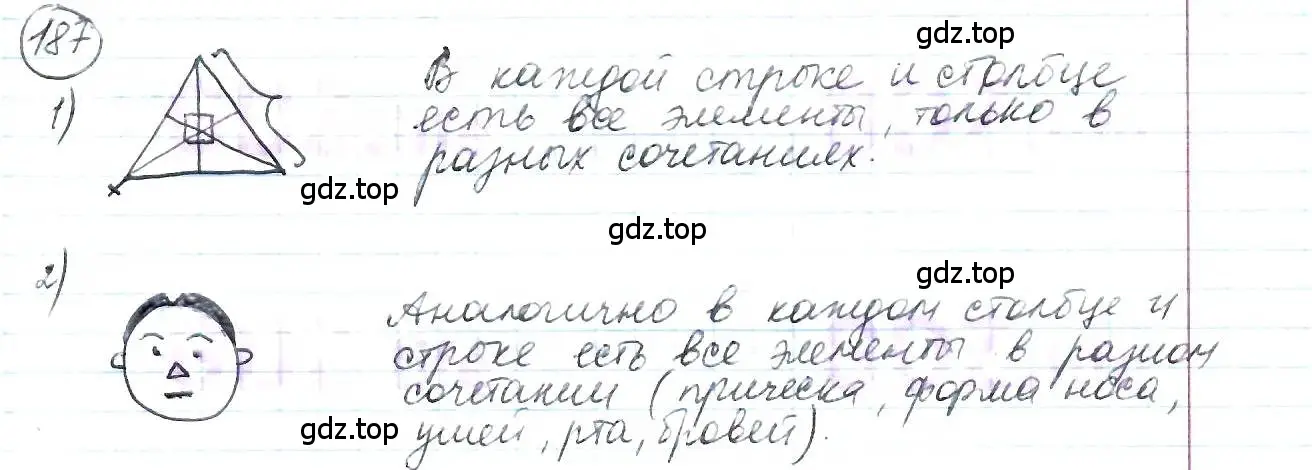 187
gdz.top
1)
В каждой строке и столбце
есть все элементы, только в
разных сочетаниях.
gdz.top
gdz.top
2)
gdz.top
Аналогично в каждом столбце и
строке есть все элементы в разном
сочетании (прическа, форма носа,
ушей, рта, бровей).
gdz.top